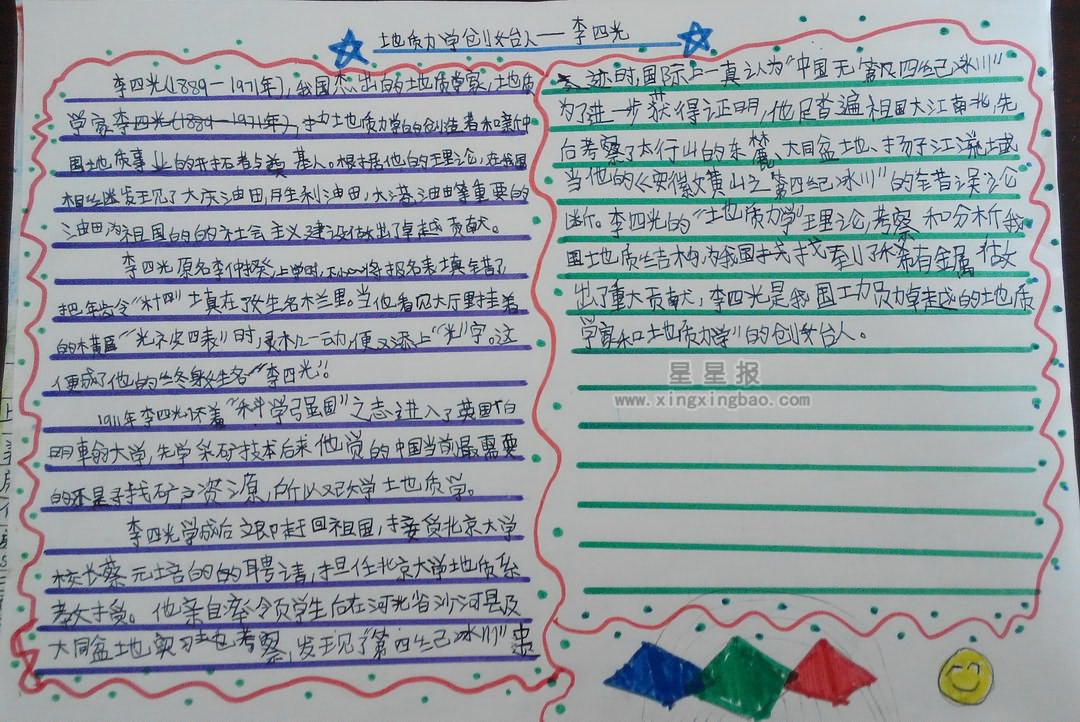 地质力学创始人——李四光
李四光(1889-1971年),我国杰出的地质学家,地质
学家李四光(1889-1971年),地质力学的创造者和新中
国地质事业的开拓者与奠基人。根据他的理论,在我国
相继发现了大庆油田,胜利油田,大港油田等重要的
油田为祖国的的社会主义建设做出了卓越贡献。
李四光原名李仲揆,上学时,不小心将报名表填错了
把年龄"十四"填在了姓名栏里。当他看见大厅里挂着
的横匾"光被四表"时,灵机一动,便又添上"光"字。这
便成了他的终身姓名"李四光"。
1911年李四光怀着"科学强国"之志进入了英国伯
明翰大学,先学采矿技术后来他觉的中国当前最需要
的还是寻找矿产资源,所以改学土地质学。
李四光学成后立即赶回祖国,接受北京大学
校长蔡元培的的聘请,担任北京大学地质系
教授。他亲自率领学生们在河北省沙河县及
大同盆地实习考察,发现了"第四纪冰川"
迹时,国际上一直认为"中国无第四纪冰川"
为了进一步获得证明,他足首遍祖国大江南北,先
后考察了太行山的东麓、大同盆地、扬子江流域
当他的《安徽黄山之第四纪冰川》的错误论
断。李四光的"土地质力学"理论,考察和分析我
国土地质结构,为我国找到了稀有金属
出了重大贡献;李四光是我国卓越的地质
学家和土地质力学"的创始人。
星星报
www.xingxingbao.com